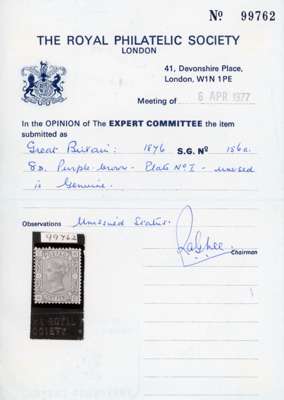 Nº 99762
THE ROYAL PHILATELIC SOCIETY
LONDON
41, Devonshire Place,
London, W1N 1PE
Meeting of 6 APR 1977
In the OPINION of The EXPERT COMMITTEE the item
submitted as
Great Britain: 1876 S.G. Nº 156a.
8d. Purple-brown - Plate No 1 - unused
is Genuine.
Observations Unissued Status.
Chairman
99762
ROYAL
SOCIETY